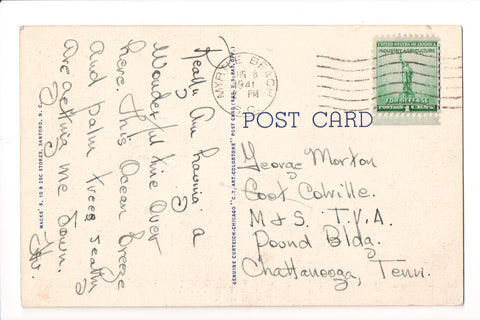 Really Am having a
Wonderful time over
here. This Ocean Breeze
And palm trees really
Are getting me down.
MACKS' 5, 10 & 25C STORES, SANFORD, N. C.
GENUINE CURTEICH-CHICAGO "C.T. ART-COLORTONE" POST CARD (REG. U.S. PAT. OFF.)
MYRTLE BEACH
1941
PM
S.C.
UNITED STATES OF AMERICA
INDUSTRY AGRICULTURE
FOR DEFENSE
POST CARD
George Morton
Coot Colville.
M & S. T.V.A.
Pound Bldg.
Chattanooga, Tenn.